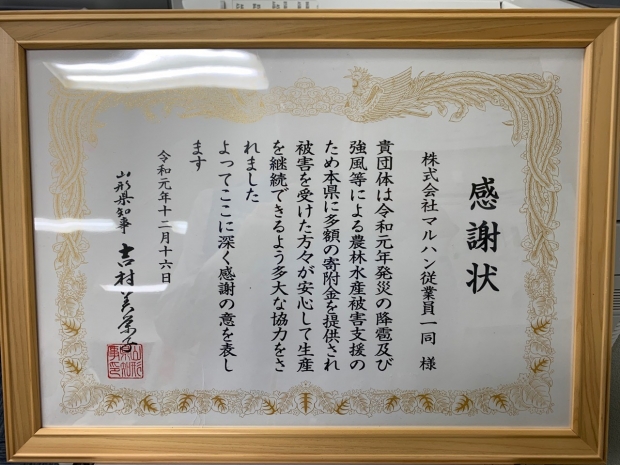 感謝状
株式会社マルハン従業員一同 様
貴団体は令和元年発災の降雹及び
強風等による農林水産被害支援の
ため本県に多額の寄附金を提供され
被害を受けた方々が安心して生産
を継続できるよう多大な協力をさ
れました
よってここに深く感謝の意を表し
ます
令和元年十二月十六日
山形県知事 吉村美栄子